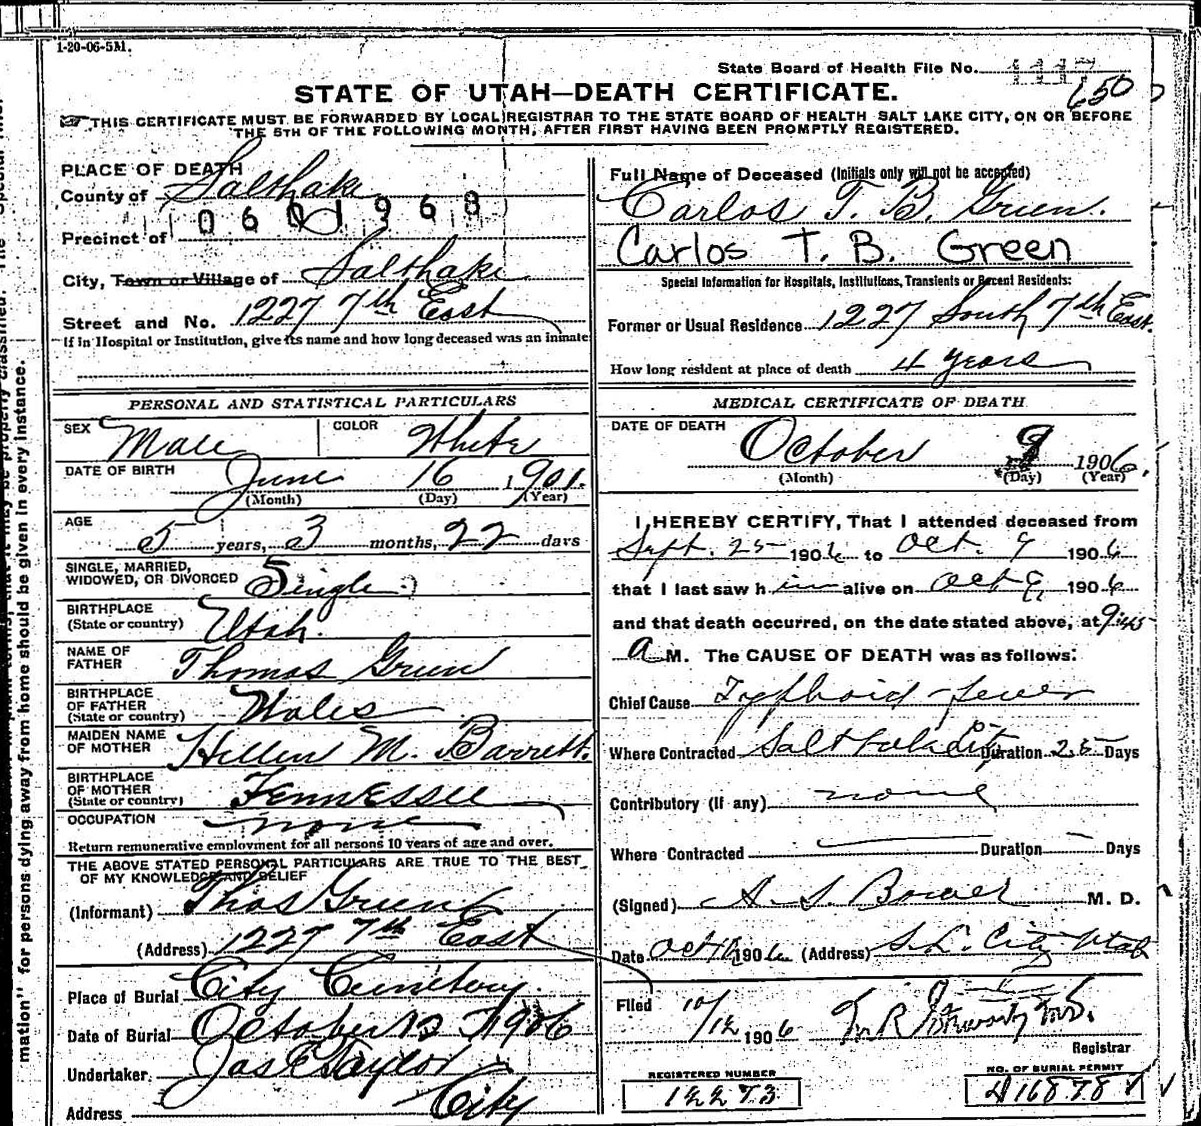 1-20-06-5M.
State Board of Health File No. 1117
650
STATE OF UTAH—DEATH CERTIFICATE.
THIS CERTIFICATE MUST BE FORWARDED BY LOCAL REGISTRAR TO THE STATE BOARD OF HEALTH SALT LAKE CITY, ON OR BEFORE
THE 5TH OF THE FOLLOWING MONTH, AFTER FIRST HAVING BEEN PROMPTLY REGISTERED.
PLACE OF DEATH
County of Salt Lake
0601968
Precinct of
City, Town or Village of Salt Lake
Street and No. 1227 7th East
If in Hospital or Institution, give its name and how long deceased was an inmate
Full Name of Deceased (Initials only will not be accepted)
Carlos T. B. Green.
Carlos T. B. Green
Special Information for Hospitals, Institutions, Transients or Recent Residents:
Former or Usual Residence 1227 South 7th East.
How long resident at place of death 4 years
PERSONAL AND STATISTICAL PARTICULARS
SEX Male COLOR White
DATE OF BIRTH June 16 1901.
(Month) (Day) (Year)
AGE 5 years, 3 months, 22 days
SINGLE, MARRIED,
WIDOWED, OR DIVORCED Single
BIRTHPLACE
(State or country) Utah.
NAME OF
FATHER Thomas Green
BIRTHPLACE
OF FATHER
(State or country) Wales
MAIDEN NAME
OF MOTHER Hellen M. Barrett.
BIRTHPLACE
OF MOTHER
(State or country) Tennessee
OCCUPATION none
Return remunerative employment for all persons 10 years of age and over.
THE ABOVE STATED PERSONAL PARTICULARS ARE TRUE TO THE BEST
OF MY KNOWLEDGE AND BELIEF
(Informant) Thos Green
(Address) 1227 7th East
Place of Burial City Cemetery.
Date of Burial October 12 1906
Undertaker Jas E Taylor
Address City
MEDICAL CERTIFICATE OF DEATH
DATE OF DEATH October 9 1906
(Month) (Day) (Year)
I HEREBY CERTIFY, That I attended deceased from
Sept. 25 1906 to Oct. 9 1906
that I last saw him alive on Oct 9, 1906
and that death occurred, on the date stated above, at 9:45
a M. The CAUSE OF DEATH was as follows:
Chief Cause Typhoid fever
Where Contracted Salt Lake City Duration 25 Days
Contributory (If any) none
Where Contracted Duration Days
(Signed) M. D.
Date Oct 1906 (Address) S. L. City Utah
Filed 10/12 1906
Registrar
REGISTERED NUMBER
12273
NO. OF BURIAL PERMIT
16878
mation" for persons dying away from home should be given in every instance.